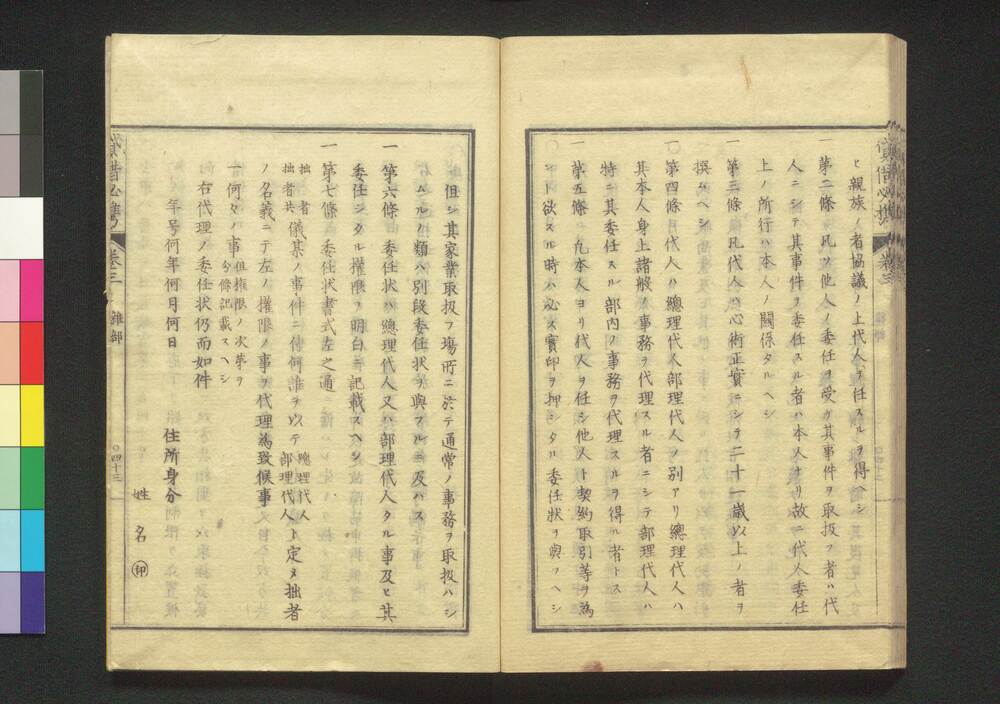 ヒ親族ノ者協議ノ上代人ヲ任スルヲ得ヘシ
一第二條 凡ソ他人ノ委任ヲ受ケ其事件ヲ取扱フ者ハ代
人ニシテ其事件ヲ委任スル者ハ本人ナリ故ニ代人委任
上ノ所行ハ本人ノ關係タルヘシ
一第三條 凡代人ハ心術正實ニシテ二十一歳以上ノ者ヲ
撰ムヘシ
〇第四條 代人ハ總理代人部理代人ノ別アリ總理代人ハ
其本人身上諸般ノ事務ヲ代理スル者ニシテ部理代人ハ
特ニ其委任スル部内ノ事務ヲ代理スルヲ得ル者トス
一第五條 凡本人ヨリ代人ヲ任シ他人ト契約取引等ヲ為
サント欲スル時ハ必ス實印ヲ押シタル委任狀ヲ與フヘシ
但シ其家業取扱フ塲所ニ於テ通常ノ事務ヲ取扱ハシ
ムルノ類ハ別段委任狀ヲ與フルニ及ハス
一第六條 委任狀ハ總理代人又ハ部理代人タル事及ヒ其
委任シタル權限ヲ明白ニ記載スヘシ
一第七條 委任状書式左之通
拙者
拙者共 儀某ノ事件ニ付何誰ヲ以テ 總理代人
部理代人 ト定メ拙者
ノ名義ニテ左ノ權限ノ事ヲ代理為致候事
一何々ノ事 但權限ノ次第ヲ
今條記載スヘシ
右代理ノ委任状仍而如件
年号何年何月何日
住所身分
姓名㊞
卷三
雜部
〇四十三